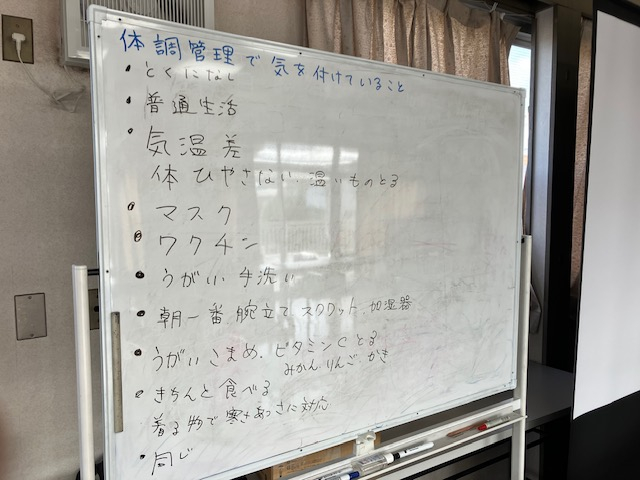 体調管理で気を付けていること
・とくになし
・普通生活
・気温差
体ひやさない、温いものとる
・マスク
・ワクチン
・うがい、手洗い
・朝一番 腕立て スクワット 加湿器
・うがいこまめ、ビタミンCとる
みかん、りんご、かき
・きちんと食べる
着る物で寒さあつさに対応
・同じ